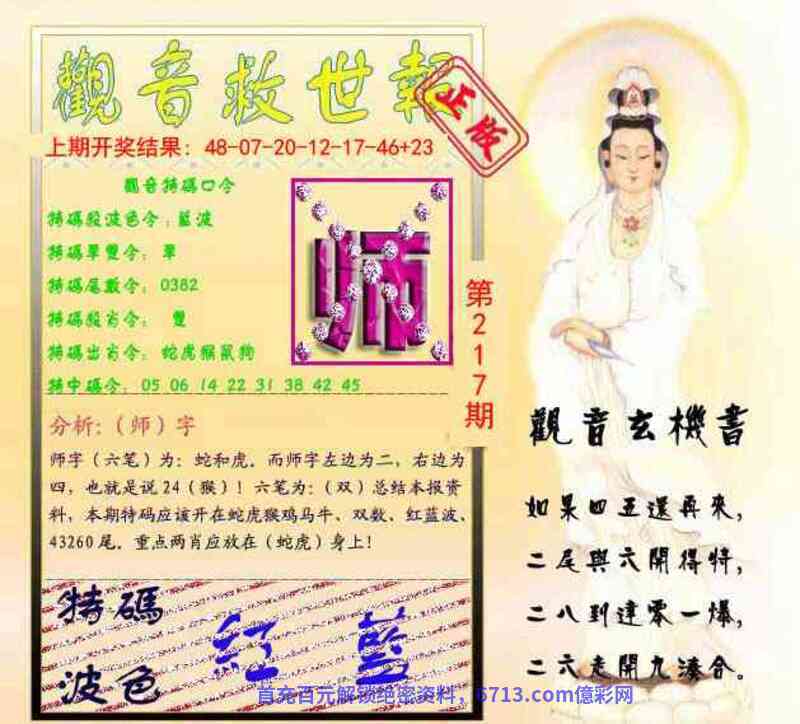 觀音救世報
正版
上期开奖结果：48-07-20-12-17-46+23
觀音特碼口令
特碼段波色令：藍波
特碼單雙令：單
特碼尾數令：0382
特碼段肖令：雙
特碼出肖令：蛇虎猴鼠狗
特中碼令：05 06 14 22 31 38 42 45
师
第217期
分析:（师）字
师字（六笔）为：蛇和虎. 而师字左边为二，右边为
四，也就是说24（猴）！六笔为:（双）总结本报资
料，本期特码应该开在蛇虎猴鸡马牛、双数、红蓝波、
43260尾. 重点两肖应放在（蛇虎）身上！
特碼
波色
紅 藍
觀音玄機書
如果四五還再來，
二尾與六開得特，
二八到達零一爆，
二六走開九湊合。
首充百元解锁绝密资料，5713.com億彩网